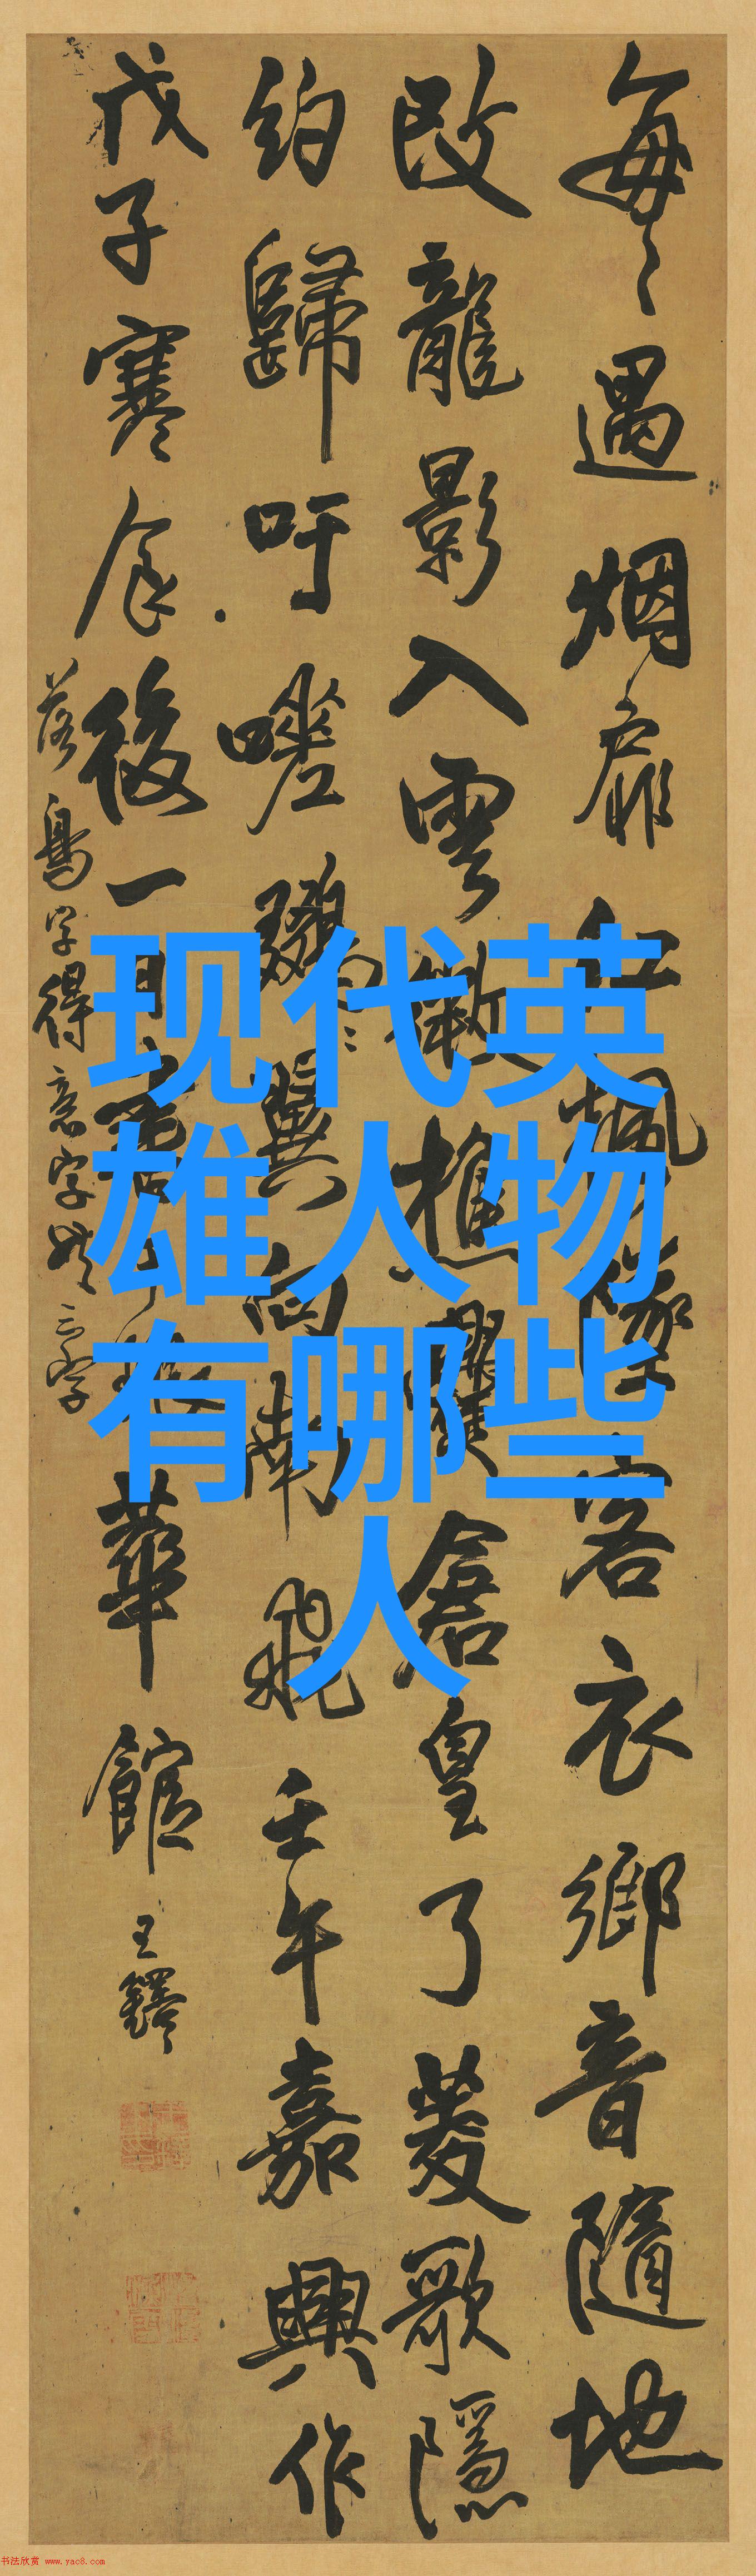 每々遇烟扉客衣鄉音隨地
改龍影入雲微樵爨倉皇了菱歌隱
約歸吁嗟翼向南飛壬午嘉興作
戊子寒食後一華館王鐸
落鳥字得意字共三字
现代英
雄人物
有哪些
人
书法欣赏 www.yac8.com